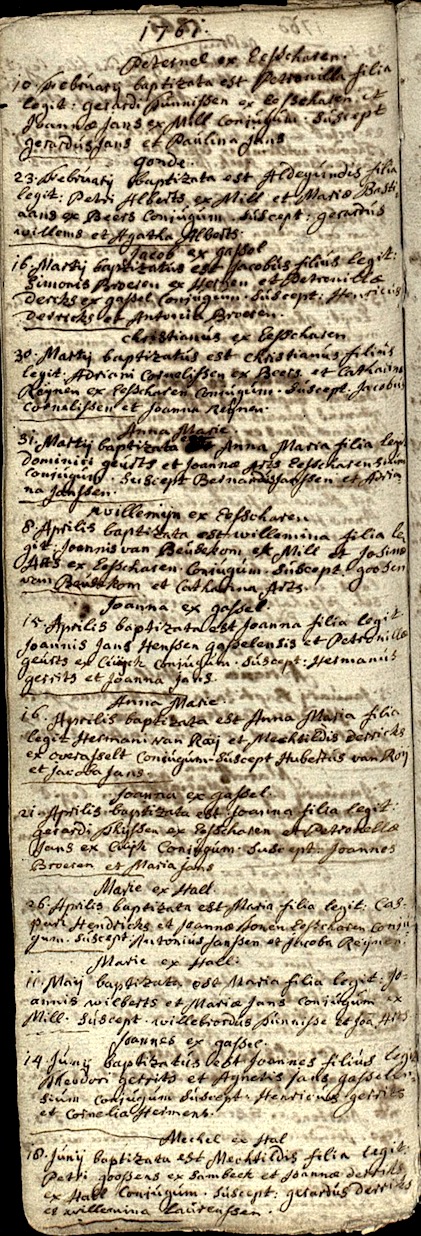 1761.
Peternel ex Eesscharen.
10. Februarij baptizata est Petronilla filia
legit: gerardi Sunnissen ex Eesscharen et
Joannæ Jans ex Mill Conjugum. Suscept
gerardus Jans et Paulina Jans
gonde.
23. Februarij baptizata est Aldegundis filia
legit: Petri Alberts ex Mill et Mariæ Basti
aans ex Beers Conjugum. Suscept: gerardus
willems et Agatha Alberts.
Jacob ex gassel
16. Martij baptizatus est Jacobus filius legit:
Simonis Broeren ex Herpen et Petronillæ
dercks ex gassel Conjugum. Suscept: Henricus
derricks et Antonia Broeren.
christianus ex Eesscharen
30. Martij baptizatus est christianus filius
legit: Adriani Cornelissen ex Beers et Catharinæ
Reijnen ex Eesscharen Conjugum. Suscept. Jacobus
Cornelissen et Joanna Reijnen.
Anna Marie.
31. Martij baptizata est Anna Maria filia leg:
dominici geurts et Joannæ Arts Eesscharensium
Conjugum. Suscept Bernardus Janssen et Adria
na Janssen.
willemijn ex Eesscharen
8. Aprilis baptizata est willemina filia le
git: Joannis van Beusekom ex Mill et Josinæ
Arts ex Eesscharen Conjugum. Suscept. goosen
van Beusekom et Catharina Arts.
Joanna ex gassel.
15. Aprilis baptizata est Joanna filia legit:
Joannis Jans Henssen gasselensis et Petronillæ
geurts ex Cuijck Conjugum. Suscept: Hermanus
gerrits et Joanna Jans.
Anna Marie.
16. Aprilis baptizata est Anna Maria filia
legit Hermani van Raij et Mechtildis derricks
ex overasselt Conjugum. Suscept Hubertus van Roij
et Jacoba Jans.
Joanna ex gassel.
21. Aprilis baptizata est Joanna filia legit:
gerardi Thijssen ex Eesscharen et Petronellæ
Jans ex Cuijck Conjugum. Suscept: Joannes
Broeren et Maria Jans
Marie ex Hall
26. Aprilis baptizata est Maria filia legit: Cas-
pari Hendricks et Joannæ Eesscharen Conju
gum. Suscept: Antonius Janssen et Jacoba Reijnen.
Marie ex Hall.
11. Maij baptizata est Maria filia legit: Jo-
annis wilberts et Mariæ Jans Conjugum ex
Mill. Suscept. willebrordus Sunnisse et Joa. Arts
Joannes ex gassel.
14. Junij baptizatus est Joannes filius legit
Theodori gerrits et Agnetis Jans gasselen-
sium Conjugum Suscept: Henricus gerrits
et Cornelia Hermens.
Mechel ex Hal
18. Junij baptizata est Mechtildis filia legit:
Petri goossens ex Sambeek et Joannæ derricks
ex Hall Conjugum. Suscept: gerardus derricks
et willemina laurenssen.